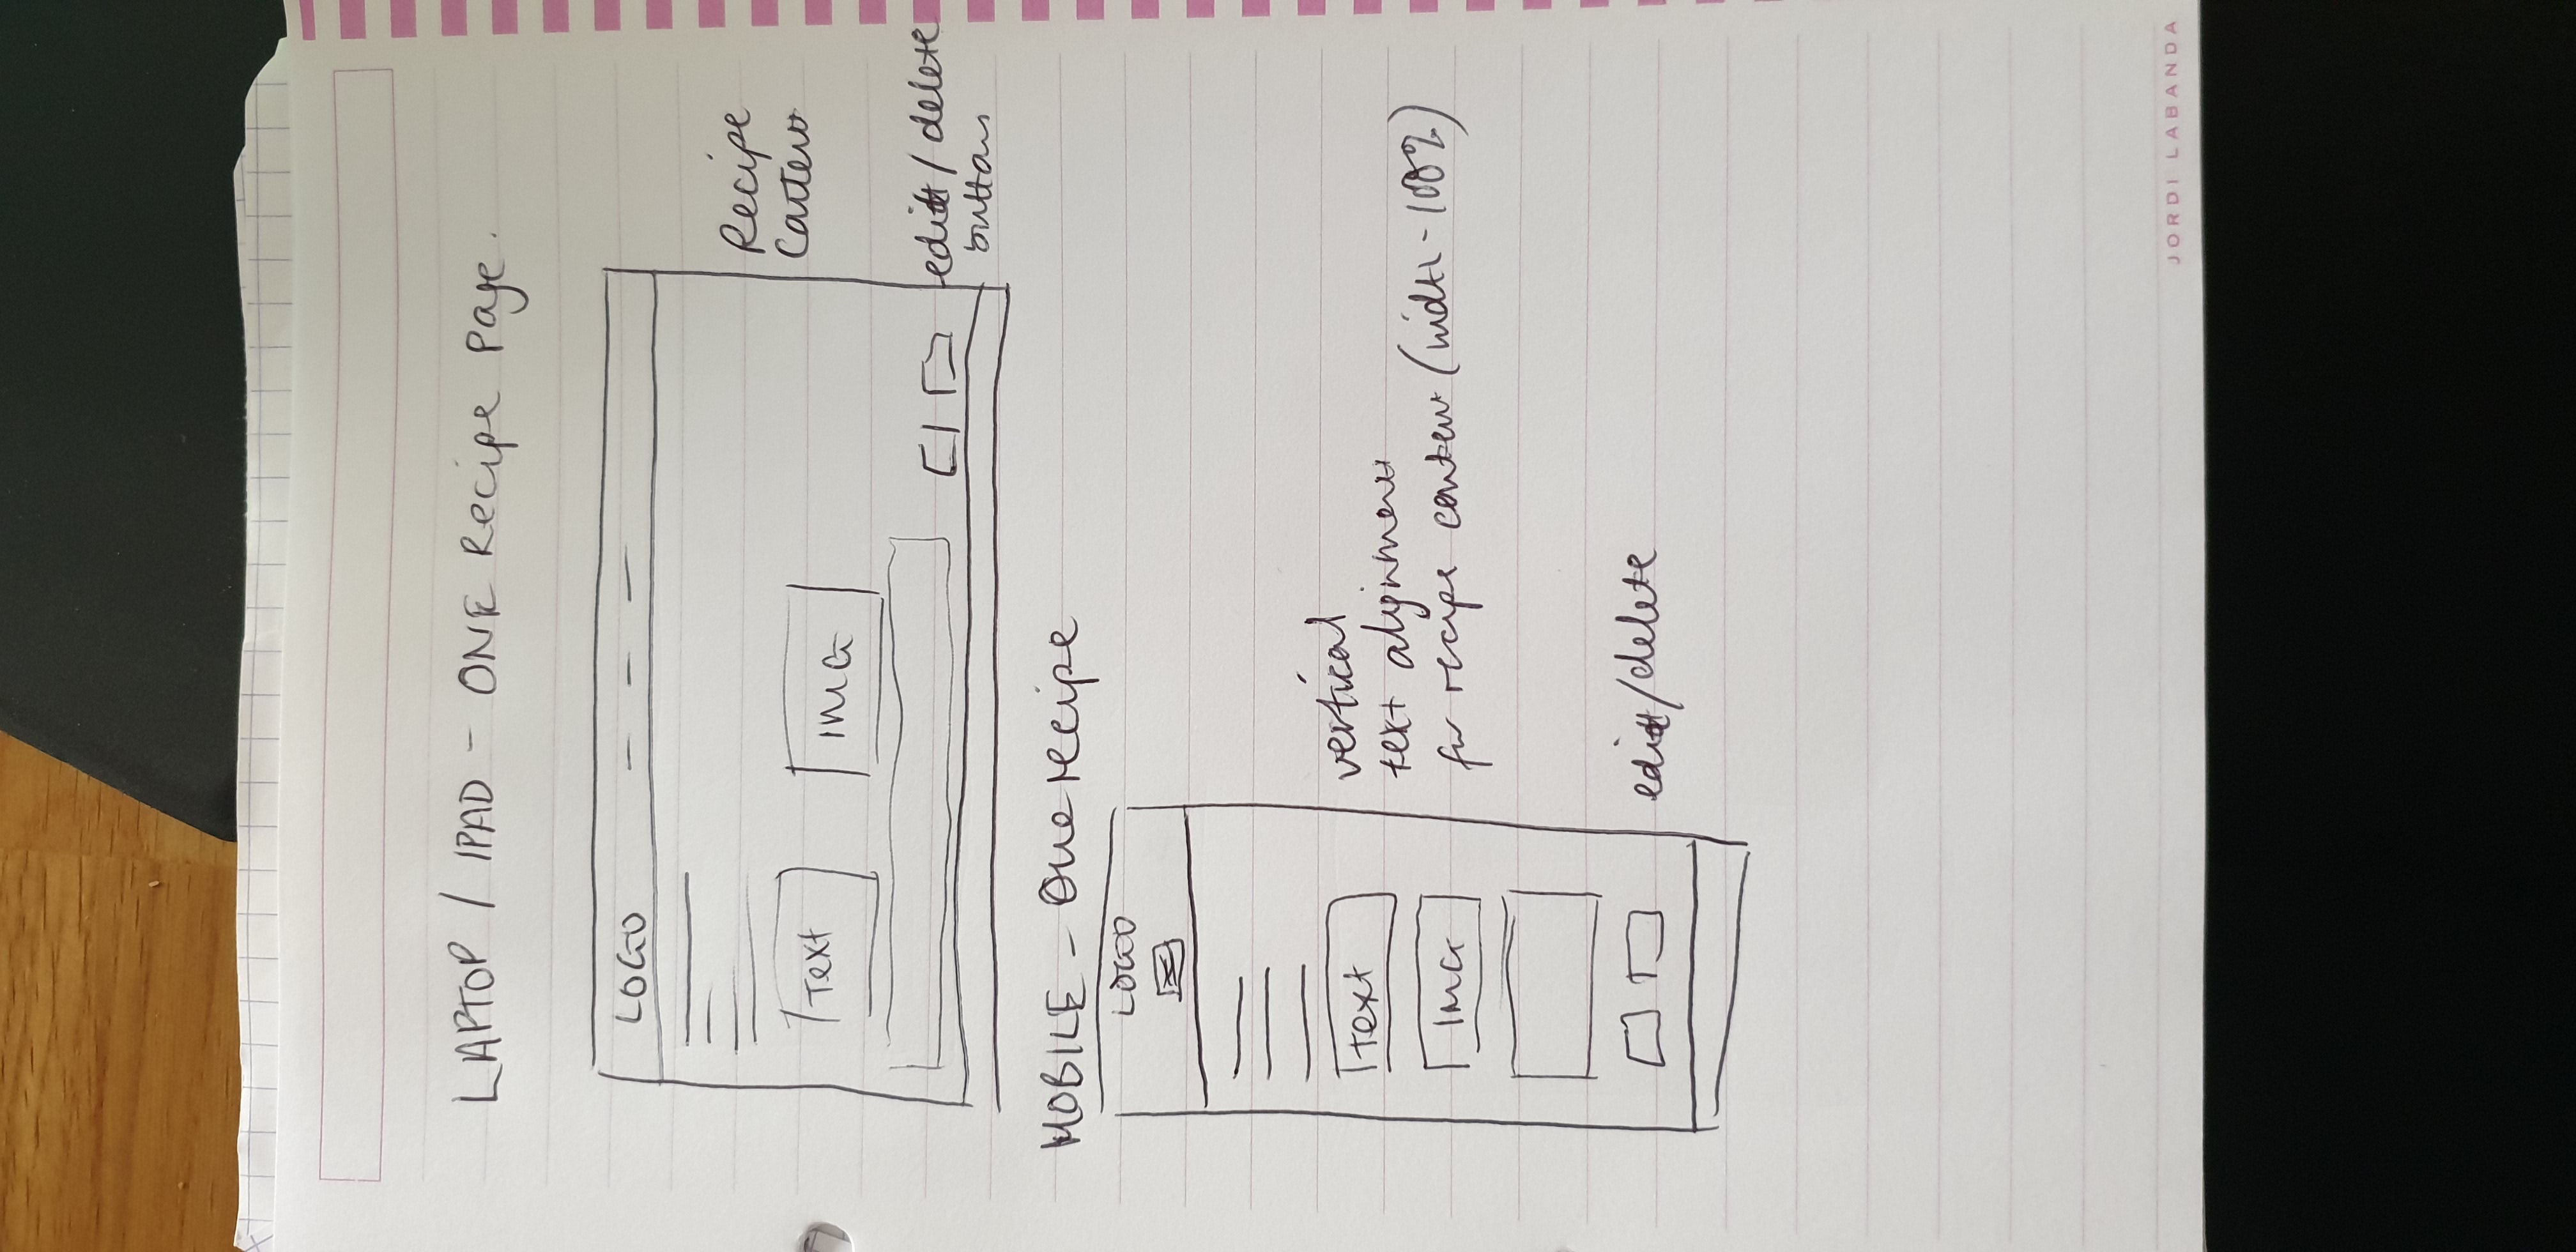 LAPTOP / IPAD - ONE Recipe Page.
LOGO
Recipe
Content
Text
IMG
edit / delete
buttons
MOBILE - One recipe
LOGO
text
vertical
text alignment
for recipe content (width - 100%)
IMG
edit/delete
JORDI LABANDA